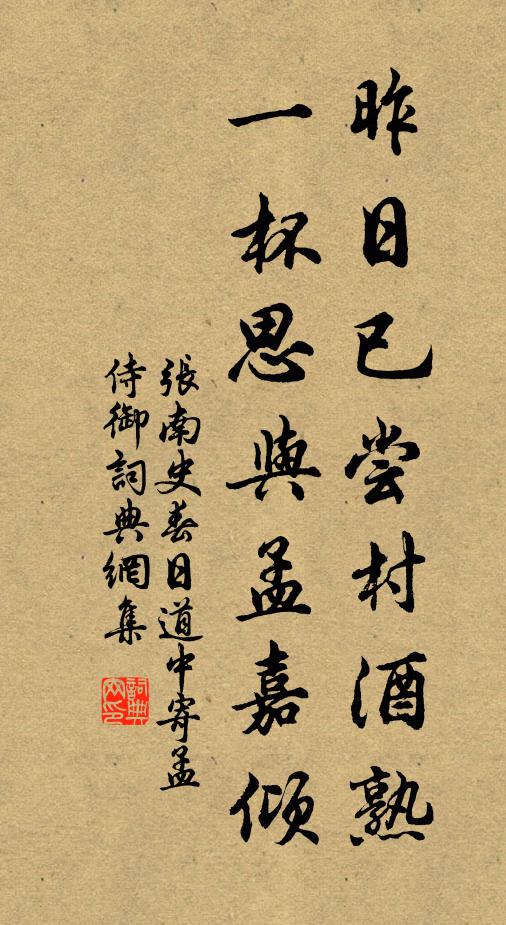 昨日已尝村酒熟
一杯思與孟嘉傾
張南史春日道中寄孟
侍御詞典網集
詞典
网印